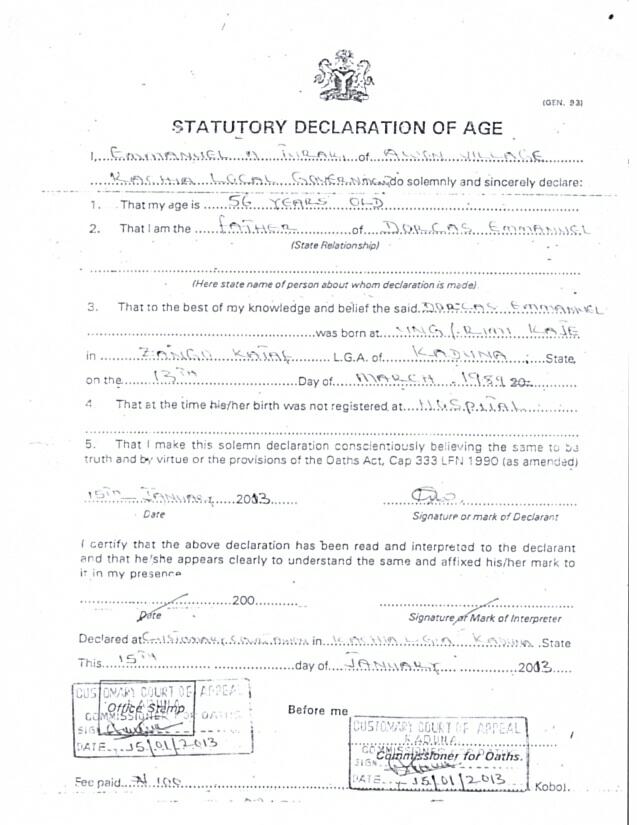 (GEN. 93)
STATUTORY DECLARATION OF AGE
I, EMMANUEL of VILLAGE
KACHIA LOCAL do solemnly and sincerely declare:
1. That my age is 56 YEARS OLD
2. That I am the FATHER of DORCAS EMMANUEL
(State Relationship)
(Here state name of person about whom declaration is made)
3. That to the best of my knowledge and belief the said DORCAS EMMANUEL
was born at UNG/RIMI KAJE
in ZANGO KATAF L.G.A. of KADUNA State,
on the 13TH Day of MARCH 1989 20
4 That at the time his/her birth was not registered at HOSPITAL
5. That I make this solemn declaration conscientiously believing the same to be
truth and by virtue or the provisions of the Oaths Act, Cap 333 LFN 1990 (as amended)
15TH JANUARY 2013
Date Signature or mark of Declarant
I certify that the above declaration has been read and interpreted to the declarant
and that he/she appears clearly to understand the same and affixed his/her mark to
it in my presence
200
Date Signature or Mark of Interpreter
Declared at in KACHIA L.G.A KADUNA State
This 15TH day of JANUARY 2013
CUSTOMARY COURT OF APPEAL
Office Stamp
COMMISSIONER FOR OATHS
SIGN
DATE 15/01/2013
Before me
CUSTOMARY COURT OF APPEAL
KADUNA
COMMISSIONER FOR OATHS
Commissioner for Oaths.
SIGN
DATE 15/01/2013
Fee paid ₦ 100 Kobo).